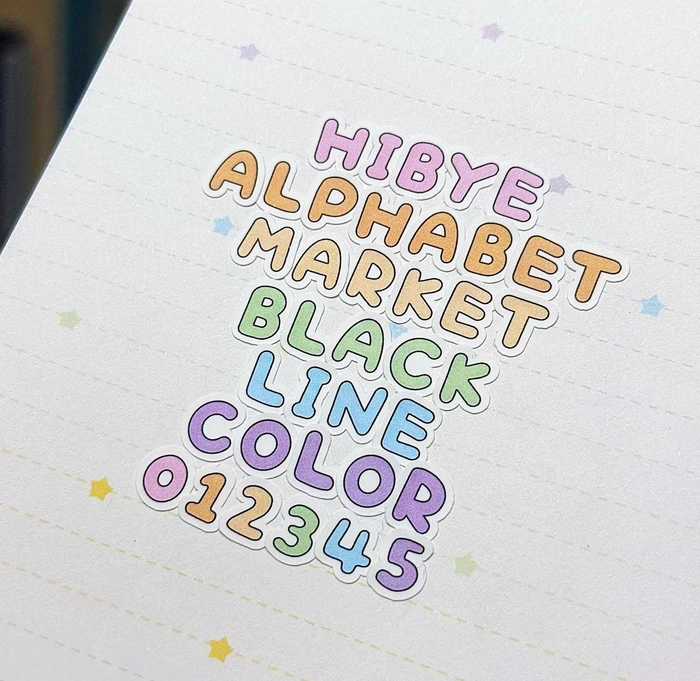 HIBYE
ALPHABET
MARKET
BLACK
LINE
COLOR
012345